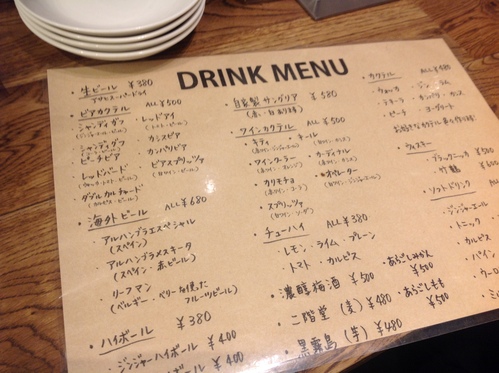 DRINK MENU
・生ビール ¥380
アサヒスーパードライ
・ビアカクテル ALL ¥500
シャンディガフ
・レッドアイ
・カシスビア
ピーチビア
・カンパリビア
・レッドバード
・ビアスプリッツァ
ダブルカルチャード
・海外ビール ALL ¥680
・アルハンブラエスペシャル
(スペイン)
・アルハンブラメスキータ
(スペイン・赤ビール)
・リーフマン
(ベルギー・ベリーを使った
フルーツビール)
・ハイボール ¥380
・ジンジャーハイボール ¥400
ハイボール ¥400
・自家製サングリア ¥580
(赤・白あります)
・ワインカクテル ALL ¥500
・キティ
・キール
・ワインクーラー
・カーディナル
・カリモチョ
・オペレーター
・スプリッツァ
・チューハイ ALL ¥380
・レモン・ライム・プレーン
・トマト・カルピス
・濃醇梅酒 ¥500
・あらごしみかん
¥500
・二階堂 (麦) ¥480
・あらごしもも
¥500
・黒霧島 (芋) ¥480
・カクテル ALL ¥480
・ウォッカ
・ジン
・テキーラ
・カンパリ・カシス
・ピーチ
・ヨーグルト
・ウィスキー
・ブラックニッカ ¥500
・竹鶴
・ソフトドリンク
・ジンジャーエール
・トニック
・カルピス
・パイン